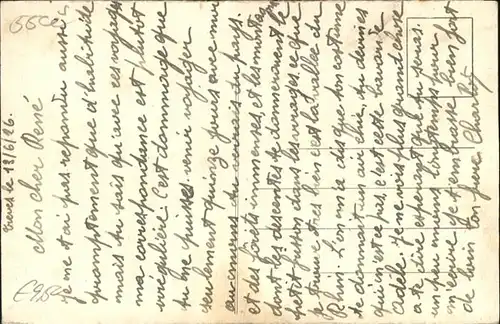 Mon cher René
je ne t'ai pas répondu aussi
promptement que d'habitude
mais tu sais qu'avec ces voyages
ma correspondance est plutôt
irrégulière. C'est dommage que
tu ne puisses venir voyager
seulement quinze jours avec moi
au courant du pays.
et des forêts immenses, et les montas
dont les descentes te donneraient le
petit frisson dans les virages. ce que
je trouve très bien c'est la vallée du
Rhin. L'on m'a dit que ton costume
te donnait un air chic, tu devines
qui n'est-ce pas, c'est cette bavarde
Adèle. Je ne vois plus grand chose
à te dire espérant que tu seras
un peu moins longtemps pour
m'écrire je t'embrasse bien fort
de loin ton frère Charlot
Trèves le 13/6/26.